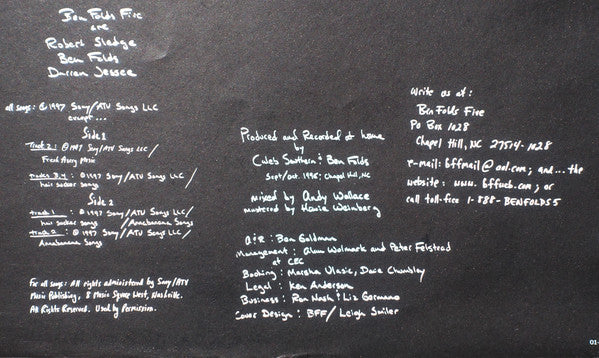 Ben Folds Five
are
Robert Sledge
Ben Folds
Darren Jessee
all songs: © 1997 Sony/ATV Songs LLC
except...
Side 1
Track 2: © 1997 Sony/ATV Songs LLC/
Fresh Avery Music
Tracks 3,4: © 1997 Sony/ATV Songs LLC/
hair sucker songs
Side 2
track 1: © 1997 Sony/ATV Songs LLC/
hair sucker songs/Annabanana Songs
track 2: © 1997 Sony/ATV Songs LLC/
Annabanana Songs
For all songs: All rights administered by Sony/ATV
Music Publishing, 8 Music Square West, Nashville.
All Rights Reserved. Used by Permission.
Produced and Recorded at home
by
Caleb Southern & Ben Folds
Sept/Oct. 1996; Chapel Hill, NC
mixed by Andy Wallace
mastered by Howie Weinberg
A&R: Ben Goldman
Management: Alan Wolmark and Peter Felstead
at CEC
Booking: Marsha Vlasic, Dave Chumbley
Legal: Ken Anderson
Business: Ron Nash & Liz Germano
Cover Design: BFF/Leigh Smiler
Write us at:
Ben Folds Five
PO Box 1028
Chapel Hill, NC 27514-1028
e-mail: bffmail@aol.com; and... the
website: www.bffweb.com; or
call toll-free 1-888-BENFOLDS5